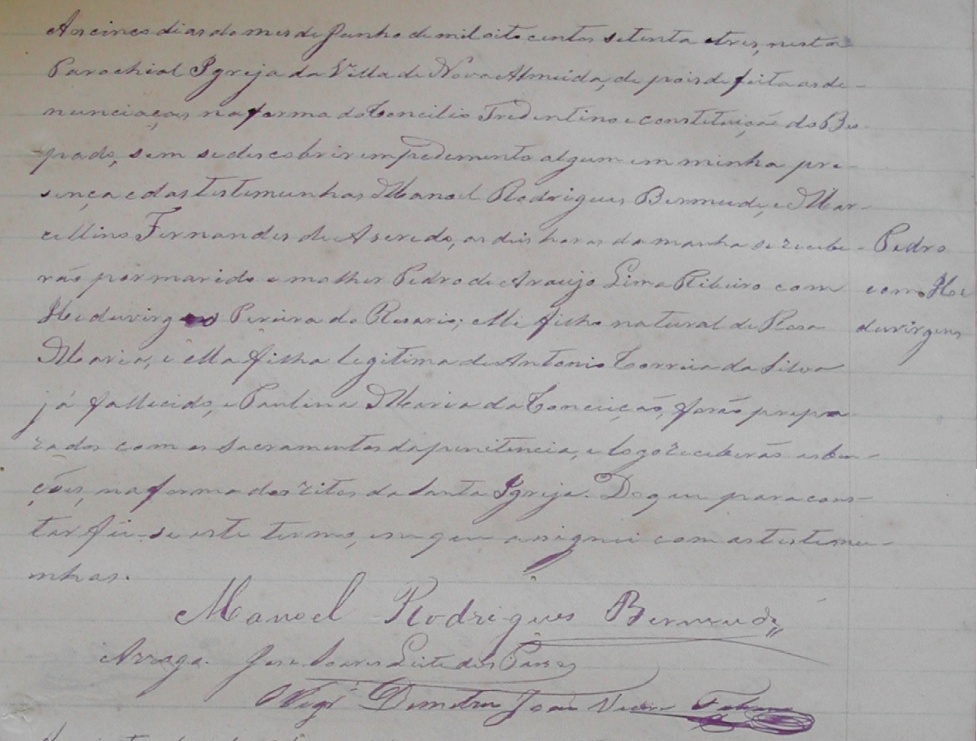 Aos cinco dias do mes de Junho de mil oito centos setenta e tres, nesta
Parochial Igreja da Villa de Nova Almeida, de pois de feita as de-
nunciações na forma do Concilio Tredentino e constituição do Bis-
pado, sem se descobrir empedemento algum em minha pre-
sença e das testemunhas Manoel Rodrigues Bermude, e Mar-
cellino Fernandes de Aseredo, as dis horas da manha se recebe-
rão por marido e molher Pedro de Araujo Lima Ribeiro com
Heduvirges Pereira do Rosario; elle filho natural de Rosa
Maria, e ella filha legitima de Antonio Correia da Silva
já fallecido, e Paulina Maria da Conceição, forão prepa-
rados com os sacramentos da penitencia, e logo receberão as ben-
ções, na forma dos ritos da Santa Igreja. Do que para cons-
tar fis-se este termo, em que assignei com as testemu-
nhas.
Pedro
com He
duvirgens
Manoel Rodrigues Bermude
José Soares Leite dos Passos
João Vieira